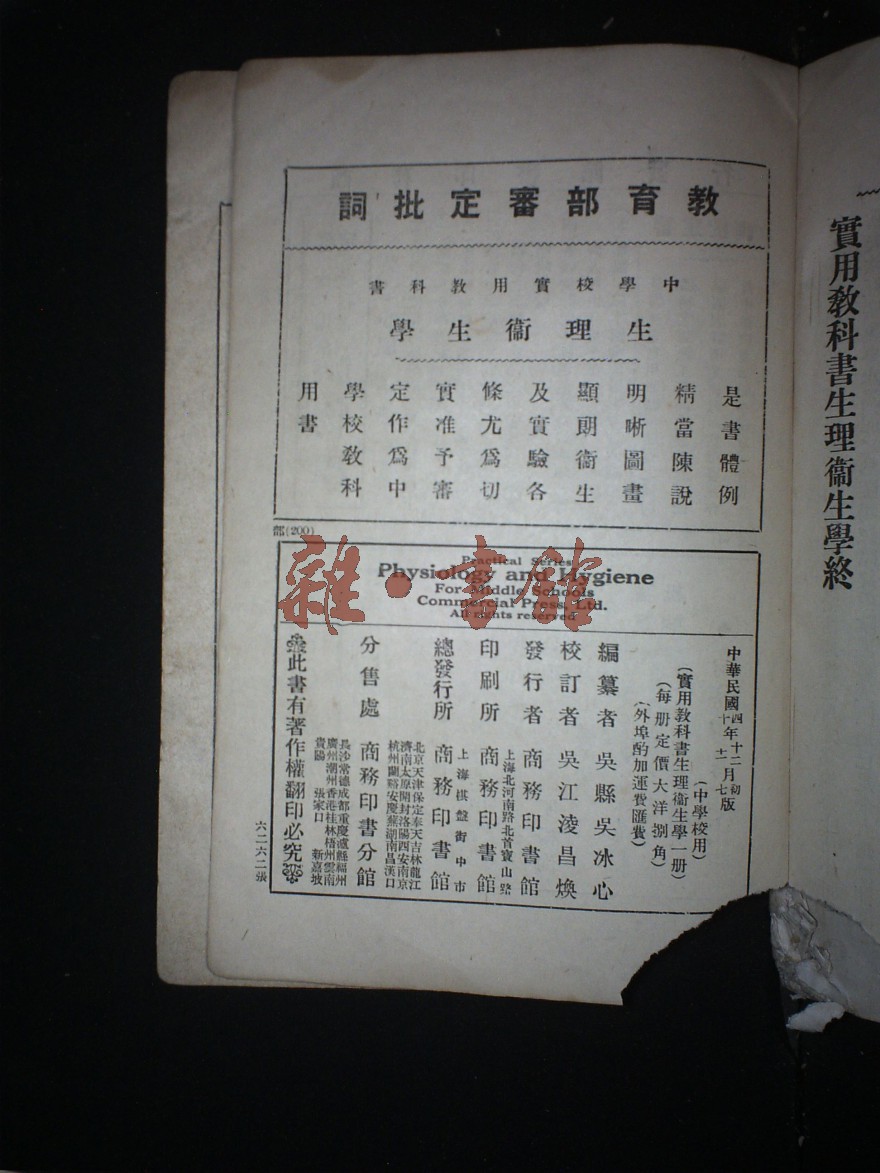 實用教科書生理衞生學終
教育部審定批詞
中學校實用教科書
生理衞生學
是書體例
精當陳說
明晰圖畫
顯朗衞生
及實驗各
條尤爲切
實准予審
定作爲中
學校教科
用書
部(200)
Practical Series
Physiology and Hygiene
For Middle Schools
Commercial Press, Ltd.
All rights reserved
中華民國四年十二月初版
十年十一月七版
(中學校用)
(實用教科書生理衞生學一册)
(每册定價大洋捌角)
(外埠酌加運費匯費)
編纂者 吳縣吳冰心
校訂者 吳江淩昌煥
發行者 商務印書館
上海北河南路北首寶山路
印刷所 商務印書館
上海棋盤街中市
總發行所 商務印書館
北京天津保定奉天吉林龍江
濟南太原開封洛陽西安南京
杭州蘭谿安慶蕪湖南昌漢口
分售處 商務印書分館
長沙常德成都重慶瀘縣福州
廣州潮州香港桂林梧州雲南
貴陽 張家口 新嘉坡
此書有著作權翻印必究
六二六二張
雜·書館